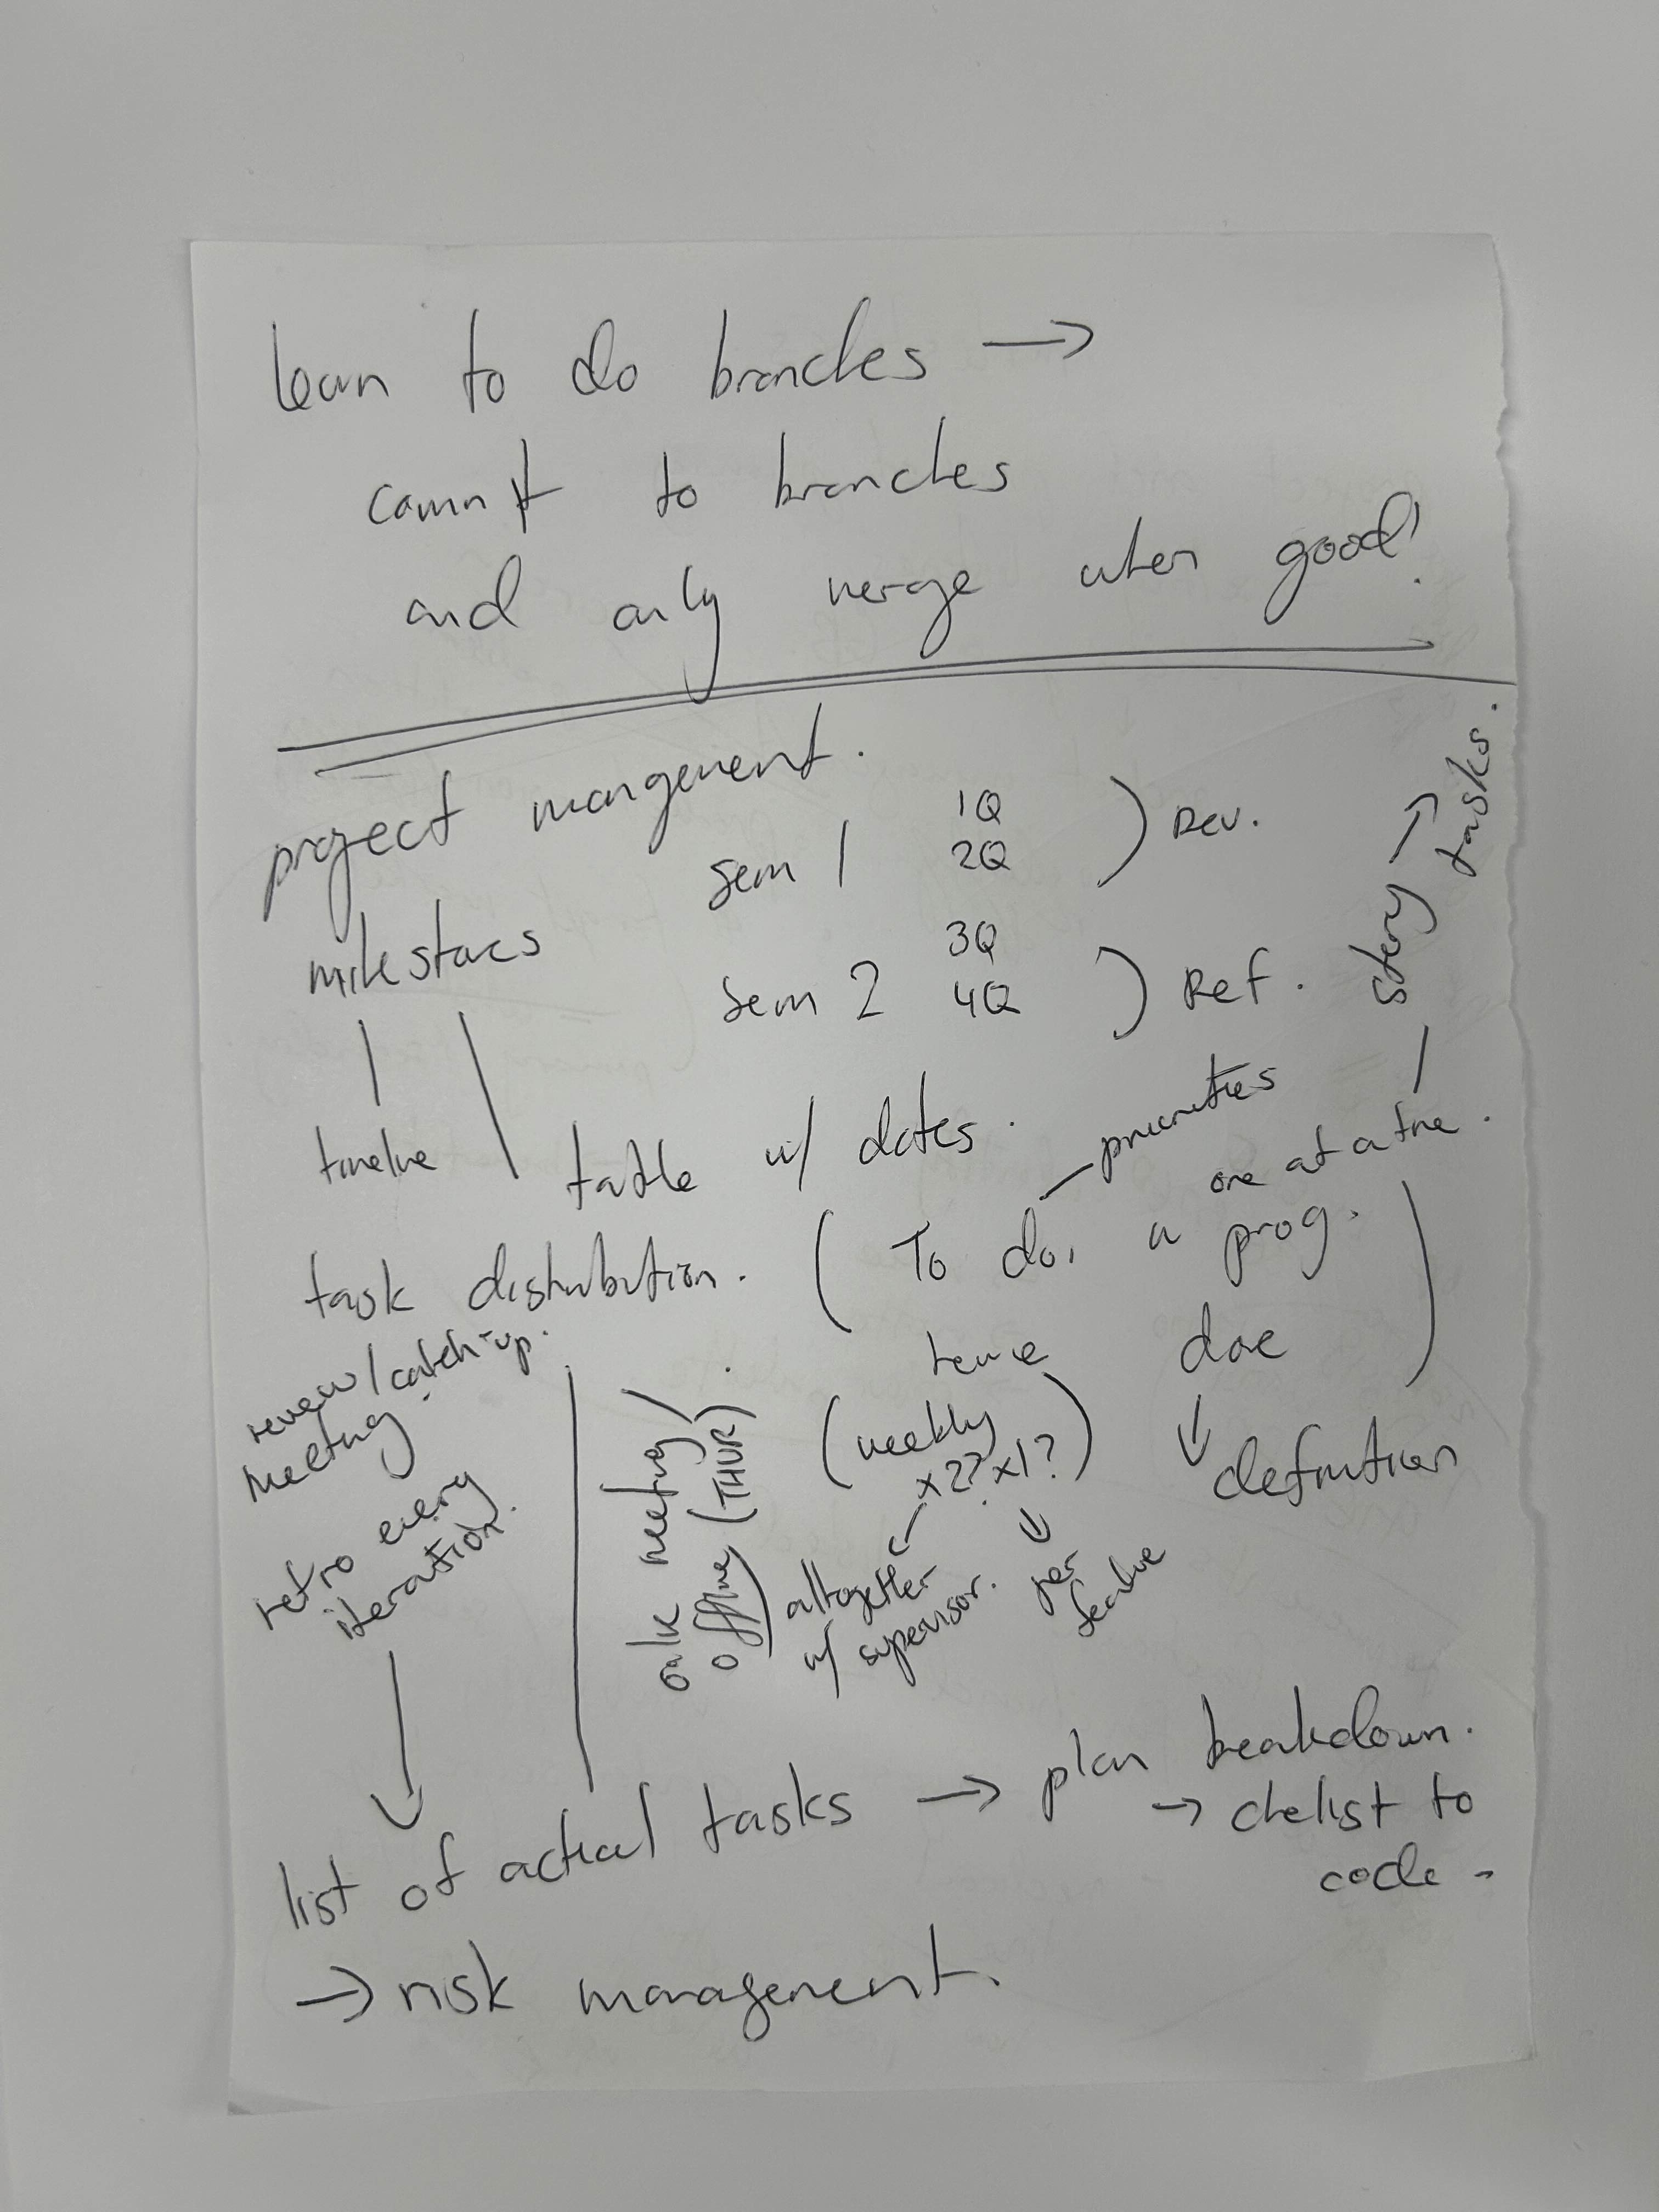 learn to do branches →
commit to branches
and only merge when good!
project mangement.
sem 1 1Q 2Q ) Dev.
milestones
sem 2 3Q 4Q ) Ref.
story → tasks.
timeline
table w/ dates.
priorities
one at a time.
task distribution. ( To do, in prog.
review done )
↓ definition
review/catch-up.
meeting.
retro every
iteration.
onlne meeting/
offline (THUR)
(weekly
x2? x1?)
altogether
w/ supervisor.
per
feature
list of actual tasks → plan breakdown.
→ cheklist to
code -
→ risk management.